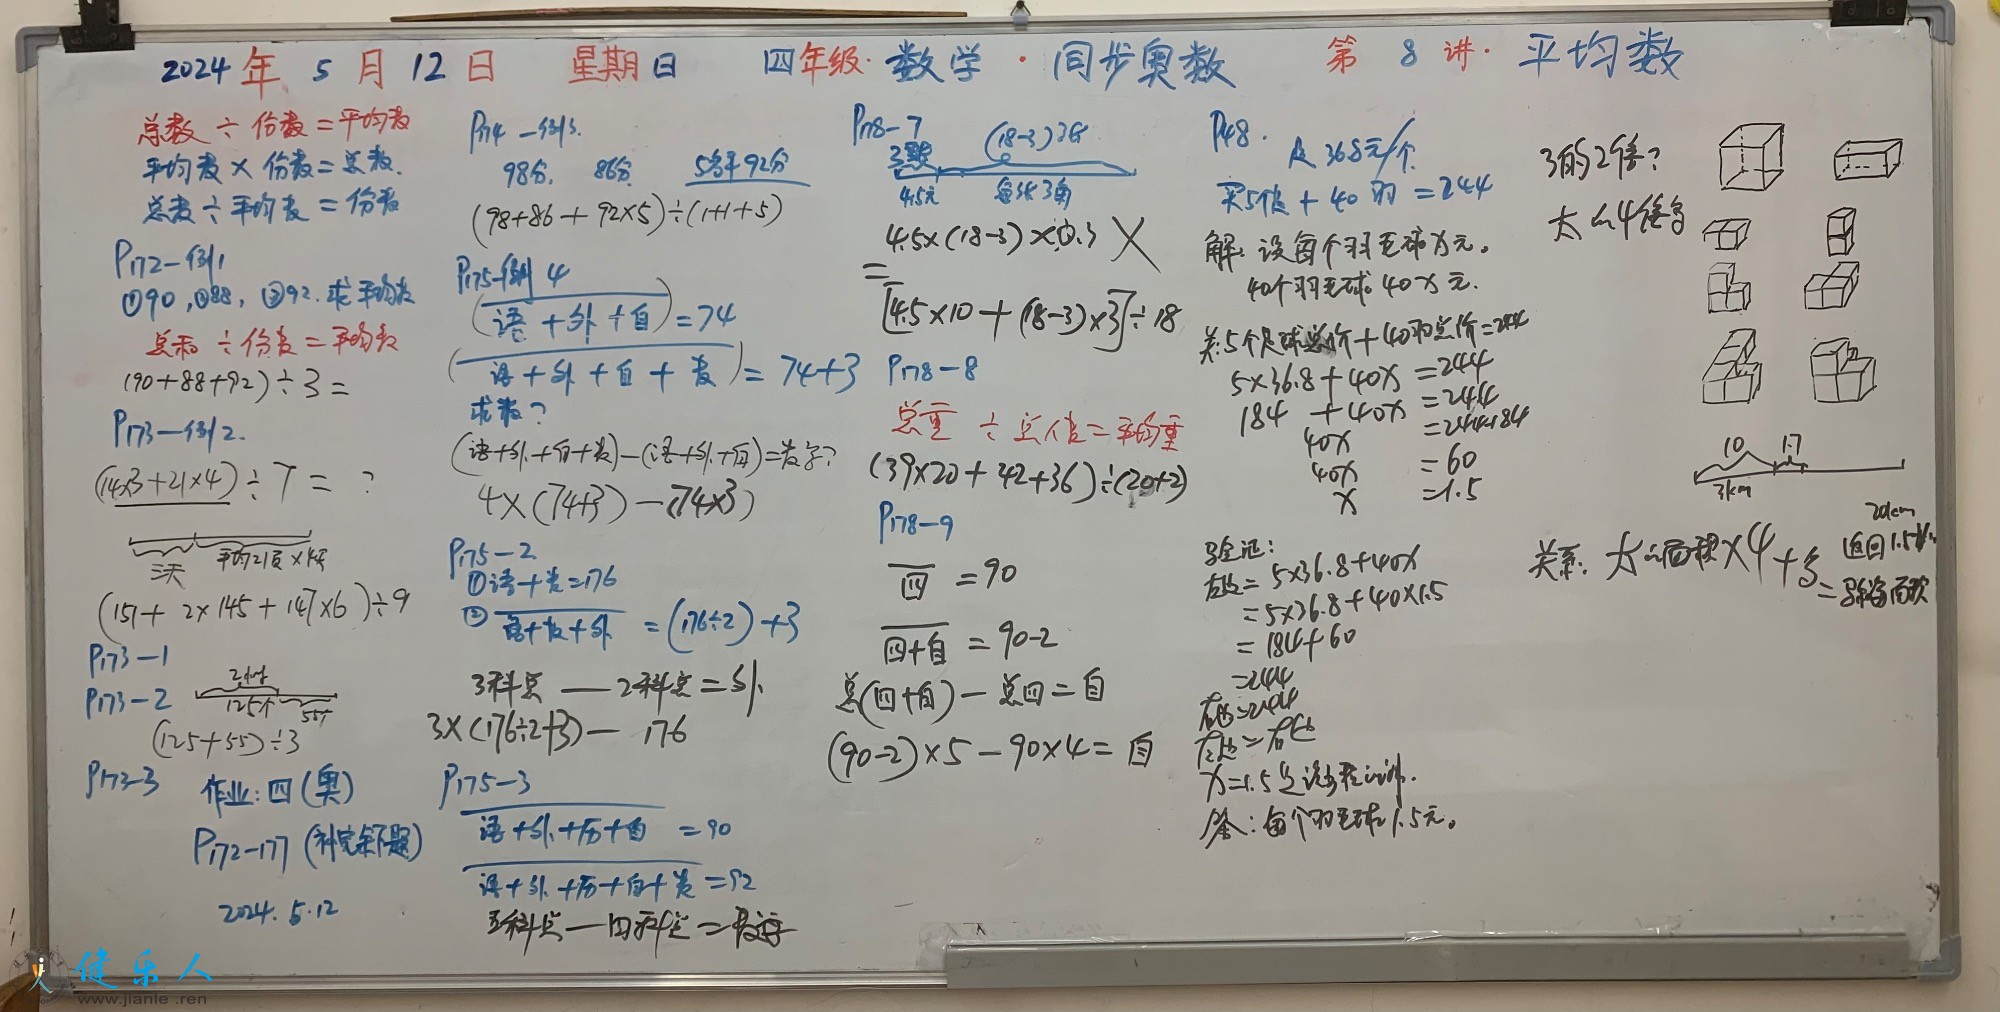 2024年5月12日 星期日 四年级·数学·同步奥数 第8讲·平均数
总数÷份数=平均数
平均数×份数=总数.
总数÷平均数=份数
P172-例1
①90,②88,③92.求平均数
总和÷份数=平均数
(90+88+92)÷3=
P173-例2.
(14×3+21×4)÷7=?
三天 平均21页×4天
(151+2×145+147×6)÷9
P173-1
P173-2
125个 55个
(125+55)÷3
P173-3
作业:四(奥)
P172-177(补完余下题)
2024.5.12
P174-例3.
98分, 86分, 5名平92分
(98+86+92×5)÷(1+1+5)
P175-例4
(语+外+自)=74
(语+外+自+数)=74+3
求数?
(语+外+自+数)-(语+外+自)=数学?
4×(74+3)-(74×3)
P175-2
①语+数=176
②语+数+外=(176÷2)+3
3科总—2科总=外
3×(176÷2+3)-176
P175-3
语+外+历+自=90
语+外+历+自+数=92
五科总—四科总=数学
P178-7
(18-3)3角
4.5元 每张3角
4.5×(18-3)×0.3 ╳
=
[4.5×10+(18-3)×3]÷18
P178-8
总重÷总个数=平均重
(39×20+42+36)÷(20+2)
P178-9
四=90
四+自=90-2
总(四+自)-总四=自
(90-2)×5-90×4=自
P48.
足36.8元/个
买5个足+40羽=244
解:设每个羽毛球x元。
40个羽毛球40x元.
关:5个足球总价+40羽总价=244
5×36.8+40x=244
184+40x=244
40x=244-184
40x=60
x=1.5
验证:
左边=5×36.8+40x
=5×36.8+40×1.5
=184+60
=244
右边=244
左边=右边
x=1.5是该方程的解.
答:每个羽毛球1.5元。
3的2倍?
太的4倍多
10 1.7
3km
20km
返回1.5
关系:太的面积×4+3=
面积
健乐人
www.jianle.ren